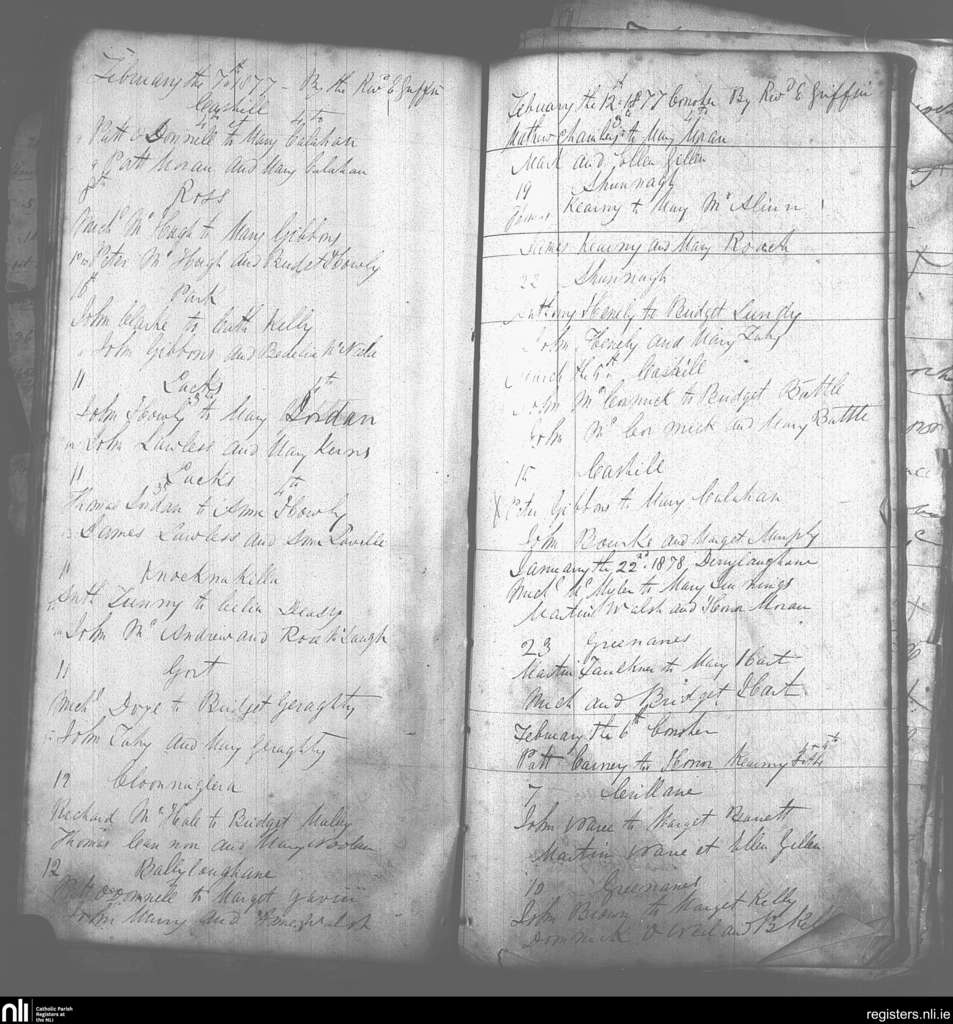 February the 7th 1877 - By the Revd E Griffin
Cashill
4th et 4th
Patt O Donnele to Mary Calahan
Patt Moran and Mary Calahan
8th Ross
Michl Mc Hugh to Mary Gibbons
Peter Mc Hugh and Budget Howly
Park
John Clarke to Cath Kelly
John Gibbons and Bedelia Mc Nele
11 Lacks 4th
John Howly to Mary Jordan
John Lawless and Mary Kerns
11 Lacks 4th
Thomas Jordan to Ann Howly
James Lawless and Ann Lavelle
11 Knocknakilla
Anth Tunny to Celia Deasy
John Mc Andrew and
11 Gort
Michl Doye to Budget Geraghty
John Tuhy and Mary Geraghty
12 Cloonnaglera
Richard Mc Hale to Budget Mulny
Thomas Cannon and Mary Nolan
12 Ballyloughane
Patt O Donnele to Margot Gavin
John Manny and Walsh
February the 12th 1877 Conoher By Revd E Griffin
Mathew Chambers to Mary Moran
Mark and Ellen Gillen
19 Shunnagh
James Kearny to Mary Mc Alinn
James Kearny and Mary Roach
22 Shunnagh
Anthony Henely to Budget Lundy
John Henely and Mary Tuhy
March the 9th Cashill
John Mc Cormick to Budget Battle
John Mc Cormick and Mary Battle
15 Cashill
X Peter Gibbons to Mary Calahan
John Bourke and Marget Murphy
January the 22nd 1878, Derryloughane
Michl Mc Myler to Mary Jennings
Martin Walsh and Honor Moran
23 Greenanes
Martin Faulkner to Mary Hart
Mich and Bridget Hart
February the 6th Conoher
Patt Carney to Honor Kearny 4th 4th
7 Carillane
John Vavee to Marget Barrett
Martin Vavee et Ellen Gillen
10 Greenanes
John Brown to Marget Kelly
Dominick O Neel and B Kelly
nli
Catholic Parish
Registers at
the NLI
registers.nli.ie